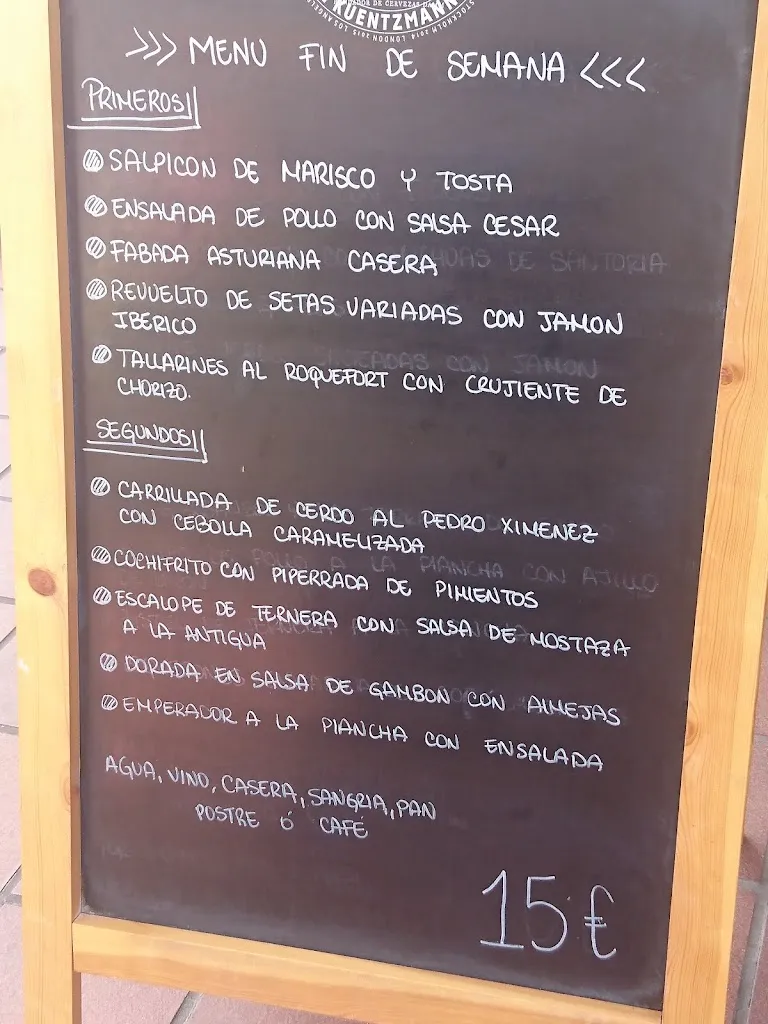 DOR DE CERVEZAS
KUENTZMANN
STOCKHOLM 2014 LONDON 2015 LOS ANGELES
>>> MENU FIN DE SEMANA <<<
PRIMEROS||
SALPICON DE MARISCO Y TOSTA
ENSALADA DE POLLO CON SALSA CESAR
FABADA ASTURIANA CASERA
REVUELTO DE SETAS VARIADAS CON JAMON
IBERICO
TALLARINES AL ROQUEFORT CON CRUJIENTE DE
CHORIZO.
SEGUNDOS||
CARRILLADA DE CERDO AL PEDRO XIMENEZ
CON CEBOLLA CARAMELIZADA
COCHIFRITO CON PIPERRADA DE PIMIENTOS
ESCALOPE DE TERNERA CON SALSA DE MOSTAZA
A LA ANTIGUA
DORADA EN SALSA DE GAMBON CON ALMEJAS
EMPERADOR A LA PLANCHA CON ENSALADA
AGUA, VINO, CASERA, SANGRIA, PAN
POSTRE Ó CAFÉ
15 €